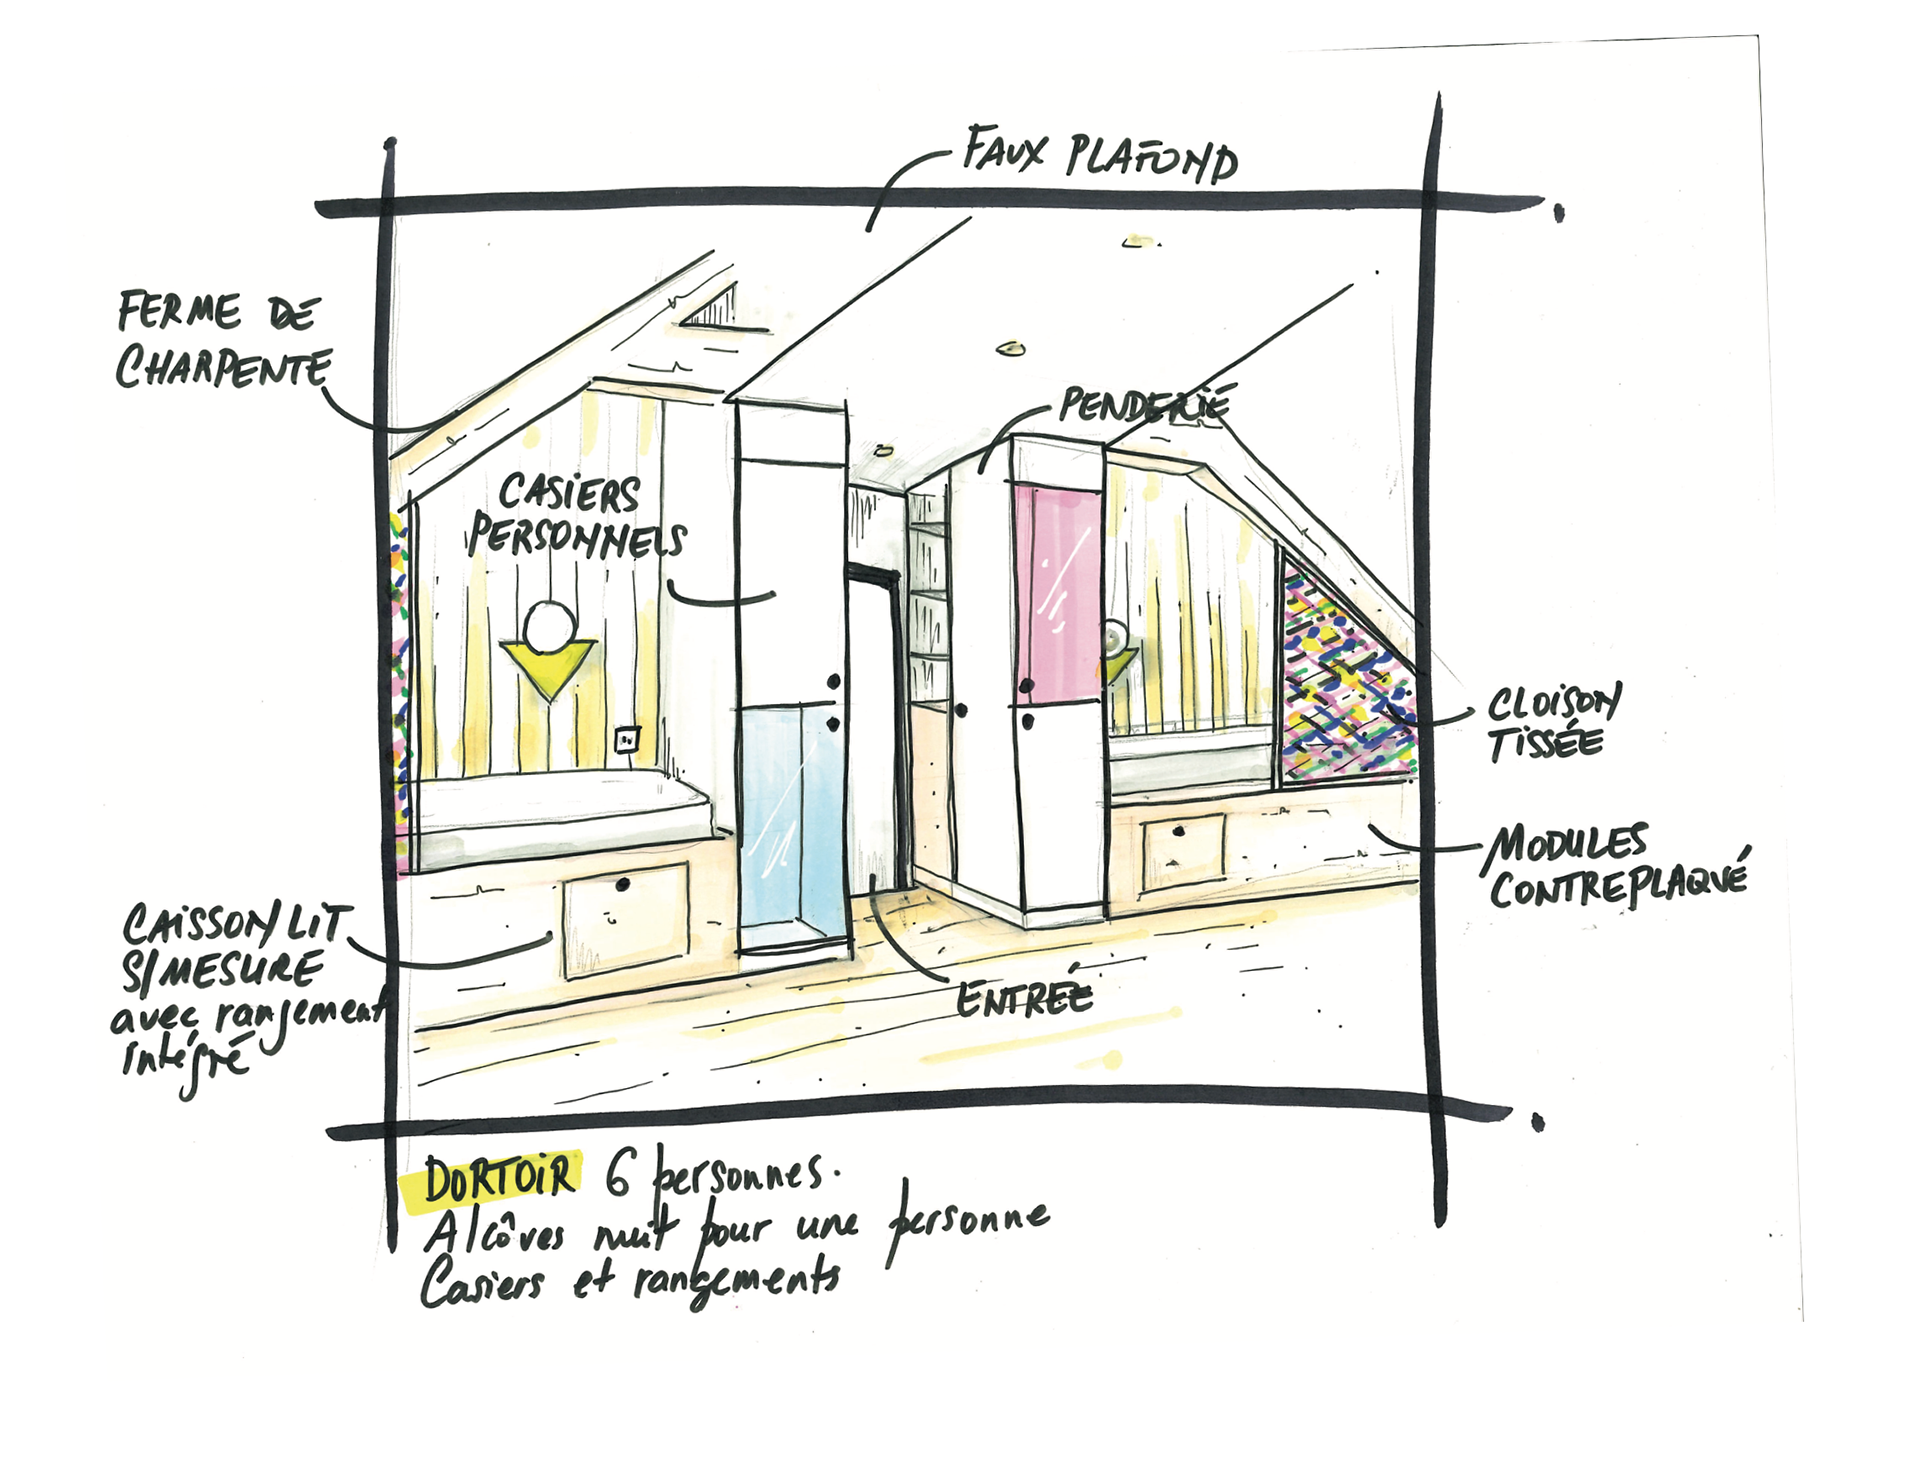 FAUX PLAFOND
FERME DE
CHARPENTE
PENDERIÉ
CASIERS
PERSONNELS
CLOISON
TISSÉE
MODULES
CONTREPLAQUÉ
CAISSON LIT
S/MESURE
avec rangement
intégré
ENTREÉ
DORTOIR 6 personnes.
Alcôves nuit pour une personne
Casiers et rangements